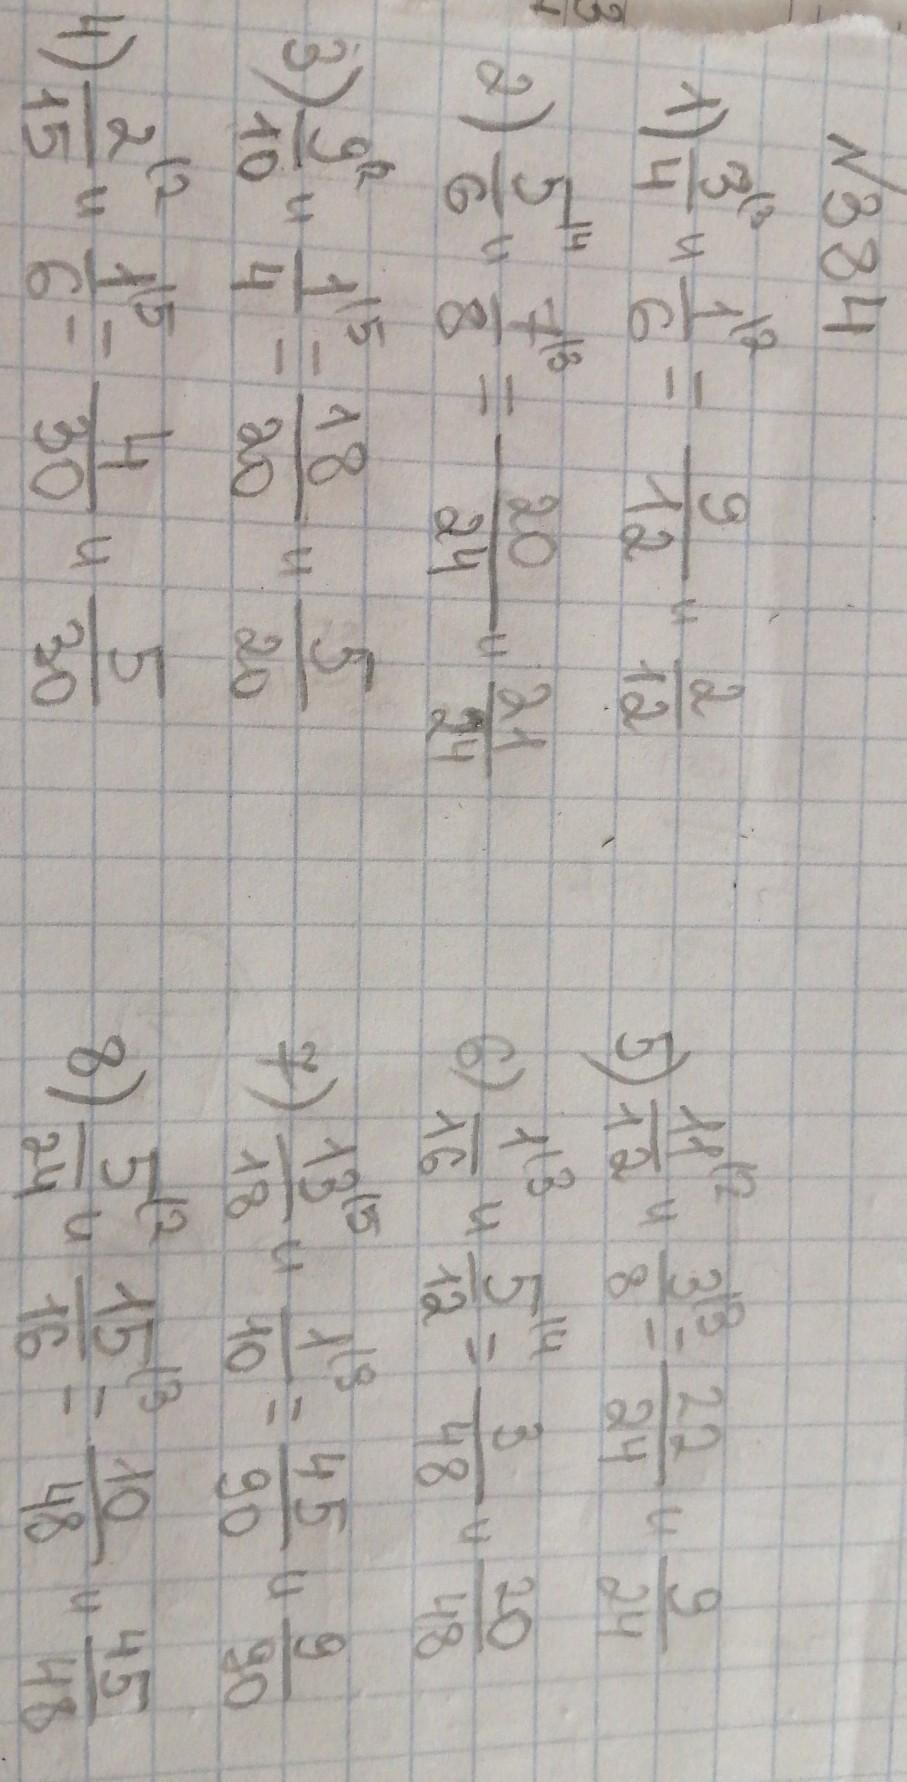 N384
1) 3/4 |3 и 1/6 |2 = 9/12 и 2/12
2) 5/6 |4 и 7/8 |3 = 20/24 и 21/24
3) 9/10 |2 и 1/4 |5 = 18/20 и 5/20
4) 2/15 |2 и 1/6 |5 = 4/30 и 5/30
5) 11/12 |2 и 3/8 |3 = 22/24 и 9/24
6) 1/16 |3 и 5/12 |4 = 3/48 и 20/48
7) 13/18 |5 и 1/10 |9 = 45/90 и 9/90
8) 5/24 |2 и 15/16 |3 = 10/48 и 45/48